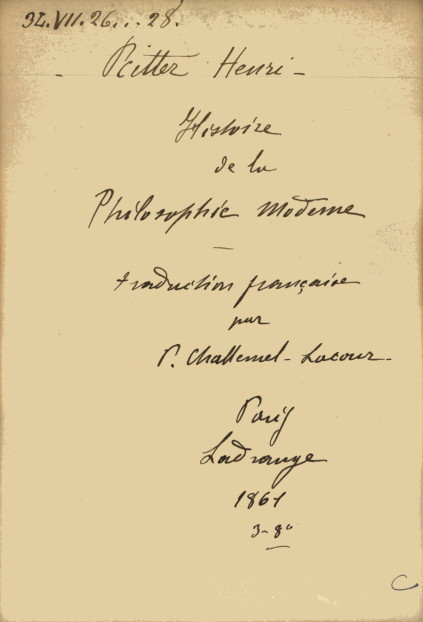 34.VII.26...28.
Ritter Henri-
Histoire
de la
Philosophie Moderne
—
traduction française
par
P. Challemel-Lacour-
Paris
Ladrange
1861
3-8°
C